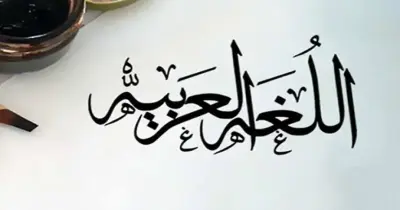 اللُغة العربية